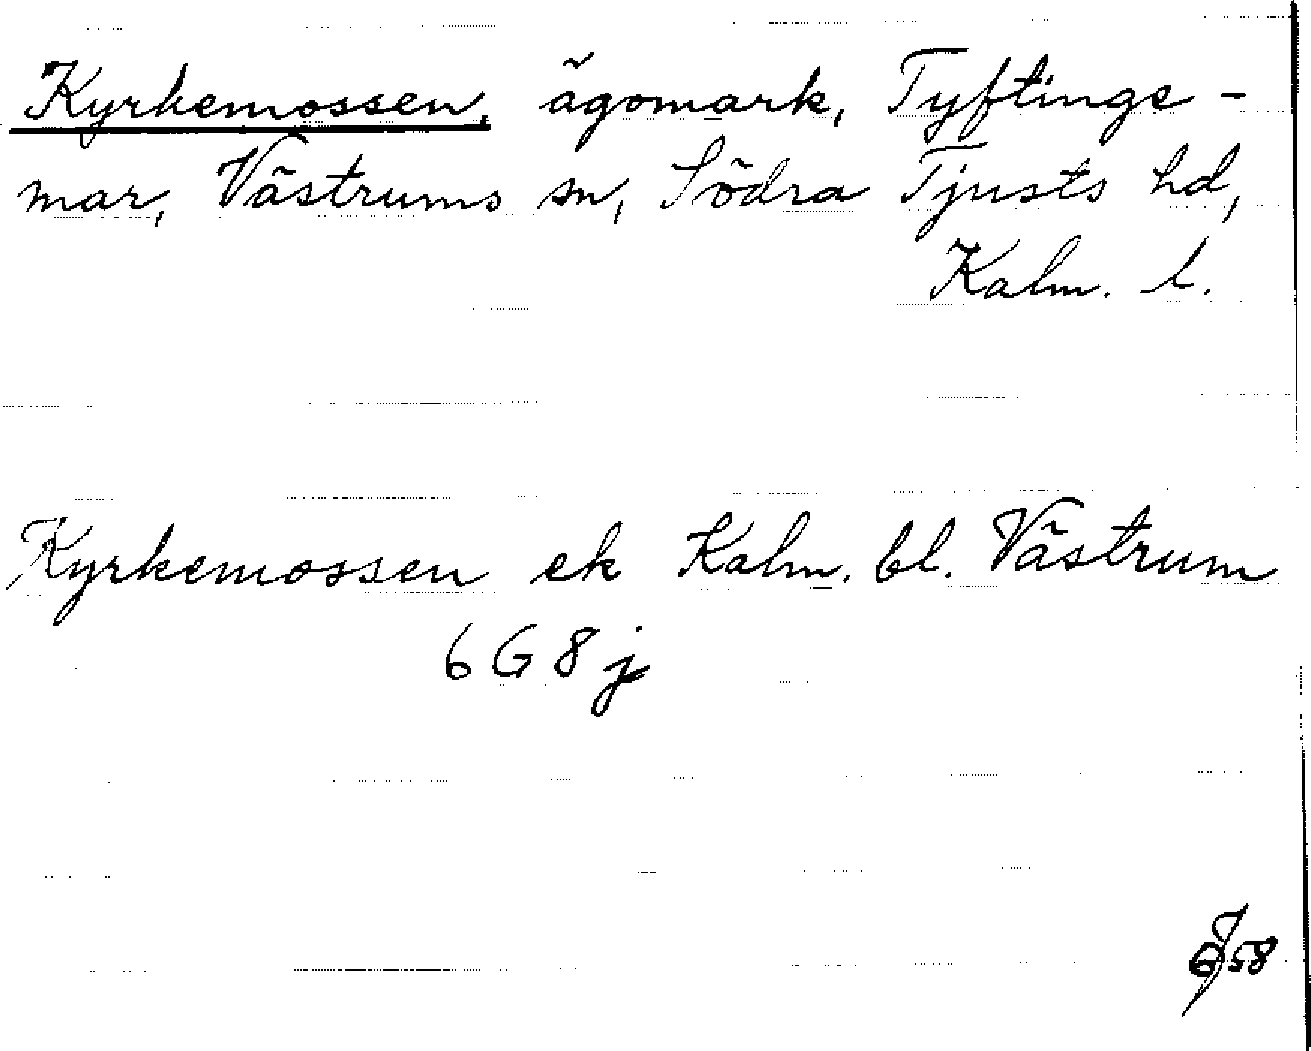 Kyrkemossen, ägomark, Tyftinge-
mar, Västrums sn, Södra Tjusts hd,
Kalm. l.
Kyrkemossen ek Kalm. bl. Västrum
6G8j
58